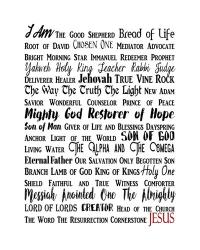 I Am The Good Shepherd Bread of Life
Root of David Chosen One Mediator Advocate
Bright Morning Star Immanuel Redeemer Prophet
Yahweh Holy King Teacher Rabbi Judge
Deliverer Healer Jehovah True Vine Rock
The Way The Truth The Light New Adam
Savior Wonderful Counselor Prince of Peace
Mighty God Restorer of Hope
Son of Man Giver of Life and Blessings Dayspring
Anchor Light of the World Son of God
Living Water The Alpha and The Omega
Eternal Father Our Salvation Only Begotten Son
Branch Lamb of God King of Kings Holy One
Shield Faithful and True Witness Comforter
Messiah Anointed One The Almighty
Lord of Lords Creator Head of the Church
The Word The Resurrection Cornerstone JESUS